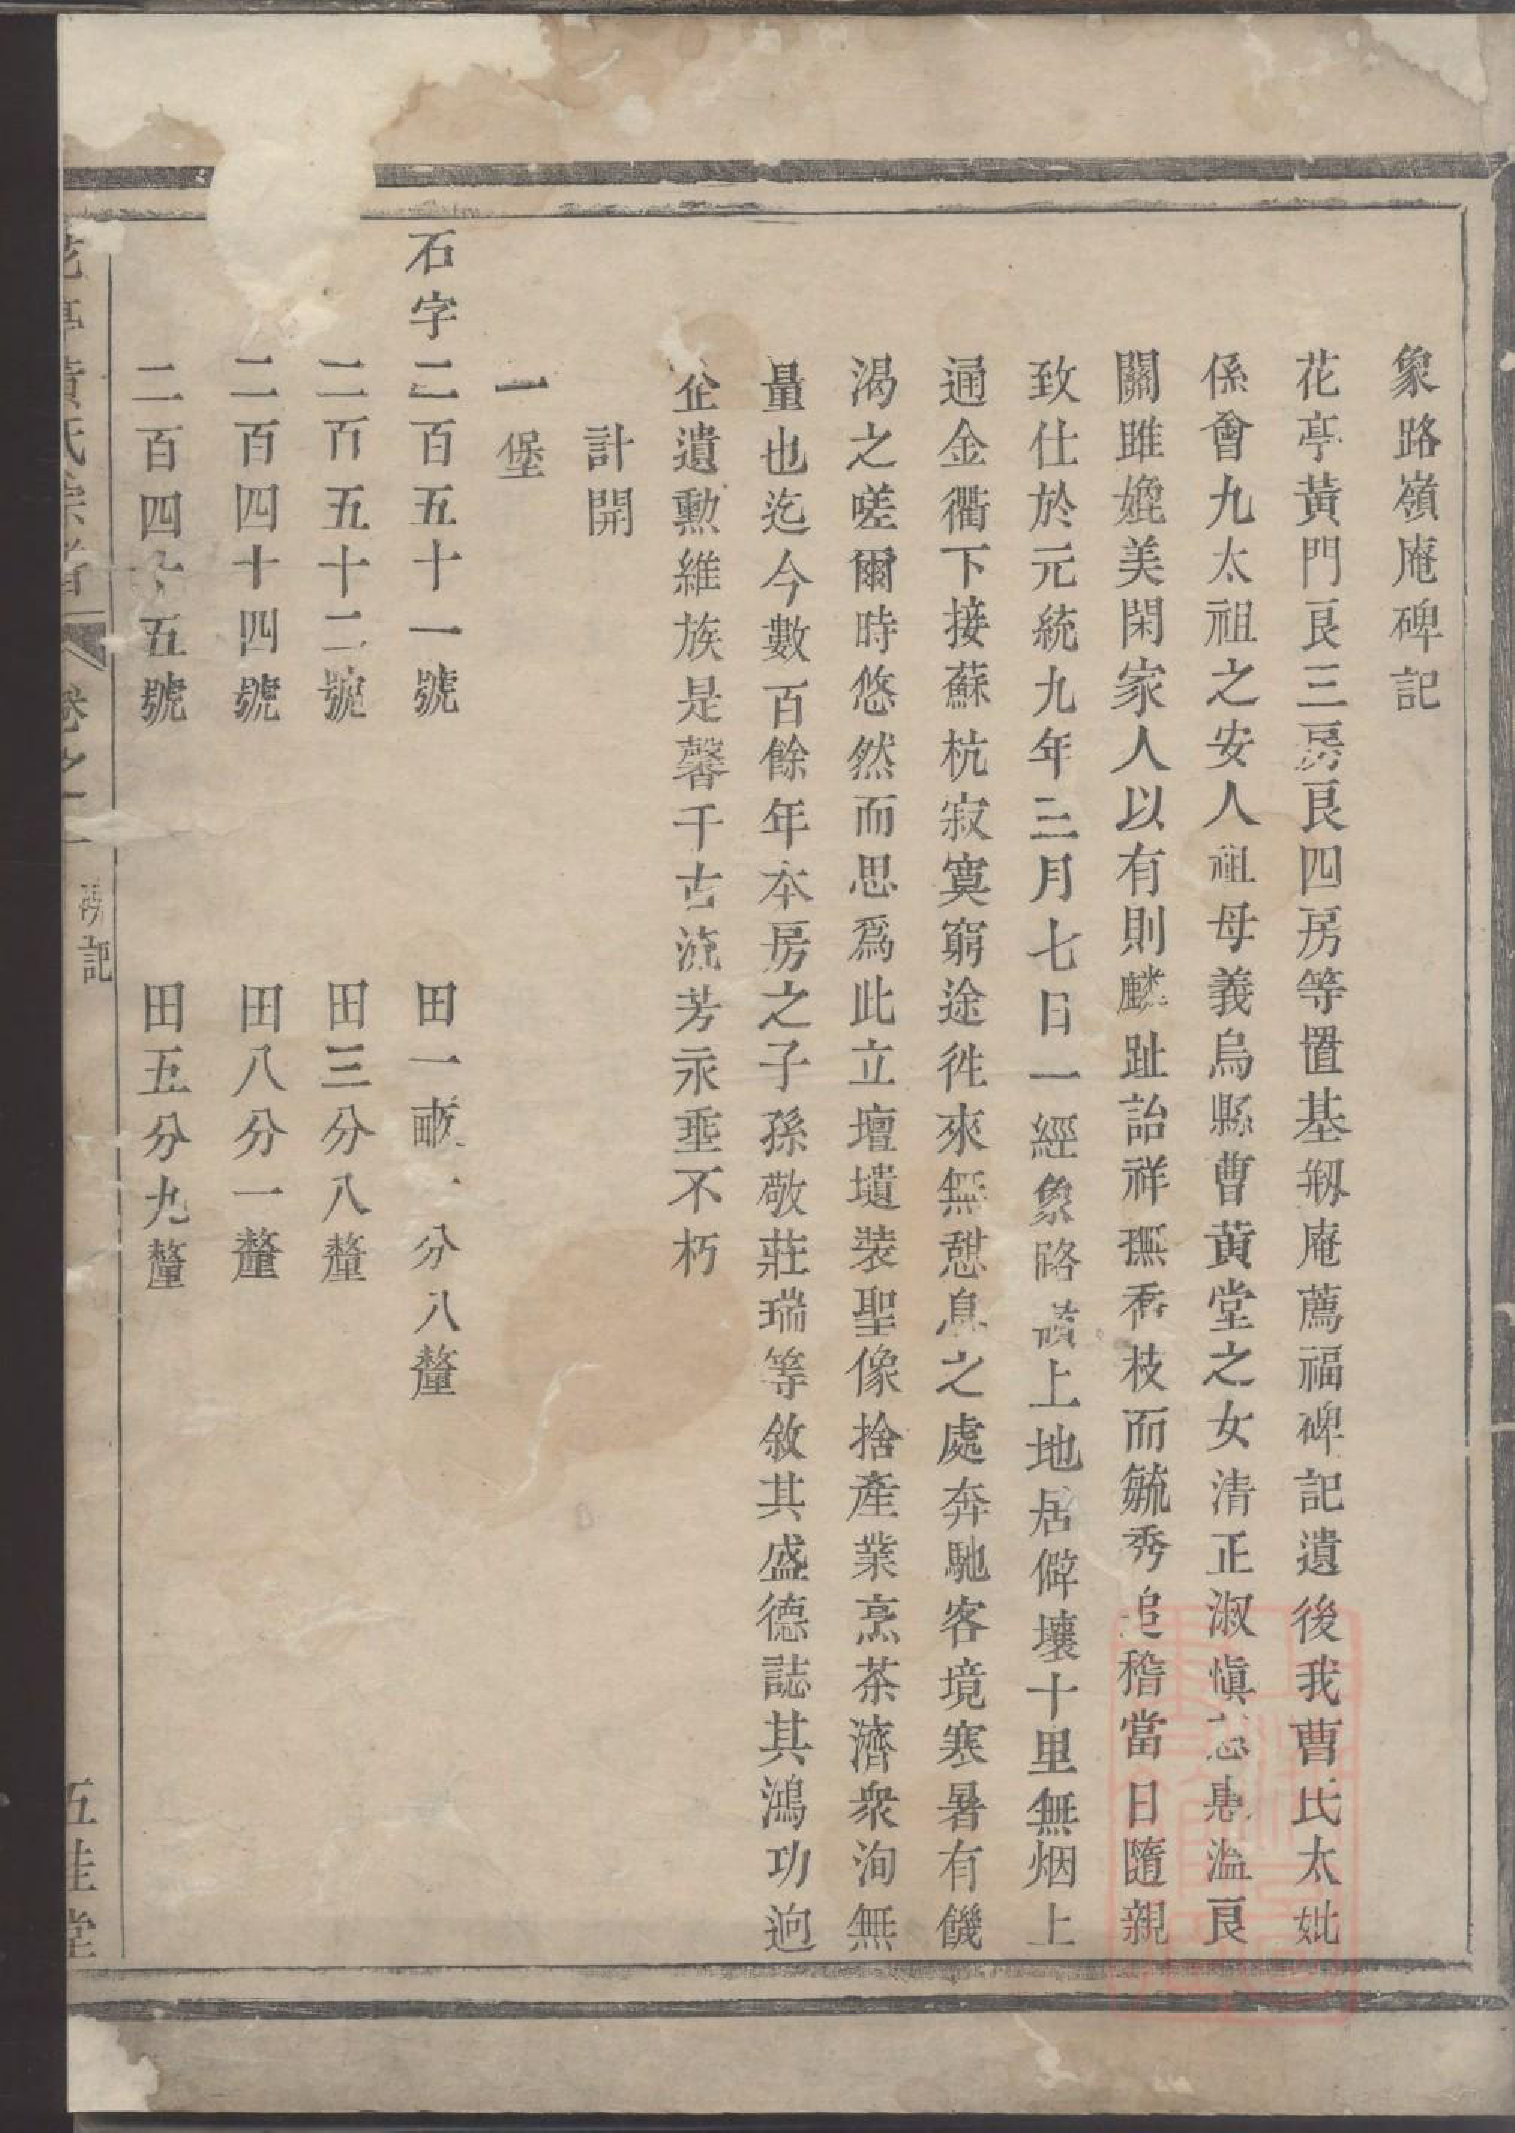 象路嶺庵碑記
花亭黃門良三房良四房等置基剏庵薦福碑記遺後我曹氏太妣
係會九太祖之安人祖母義烏縣曹黃堂之女清正淑慎溫良
關雎媲美閑家人以有則麟趾詒祥撫喬枝而毓秀追稽當日隨親
致仕於元統九年三月七日一經象路嶺上地居僻壤十里無烟上
通金衢下接蘇杭寂寞窮途徃來無憇息之處奔馳客境寒暑有饑
渴之嗟爾時悠然而思爲此立壇壝裝聖像捨產業烹茶濟衆洵無
量也迄今數百餘年本房之子孫敬莊瑞等敘其盛德誌其鴻功迥
企遺勲維族是馨千古流芳永垂不朽
計開
一堡
石字二百五十一號 田一畝一分八釐
二百五十二號 田三分八釐
二百四十四號 田八分一釐
二百四十五號 田五分九釐
花亭黃氏宗譜 卷之一 碑記 五桂堂